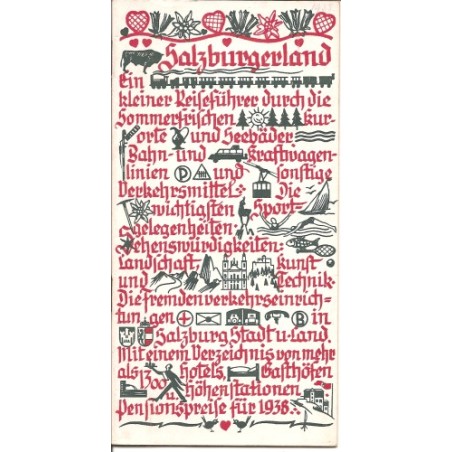 Salzburgerland
Ein
kleiner Reiseführer durch die
Sommerfrischen, Kur-
orte und Seebäder
Bahn- und Kraftwagen-
linien P und sonstige
Verkehrsmittel: Die
wichtigsten Sport-
gelegenheiten:
Sehenswürdigkeiten:
Landschaft, Kunst
und Technik.
Die Fremdenverkehrseinrich-
tungen B in
Salzburg Stadt u. Land.
Mit einem Verzeichnis von mehr
als 1300 Hotels, Gasthöfen
u. Höhenstationen
Pensionspreise für 1938.